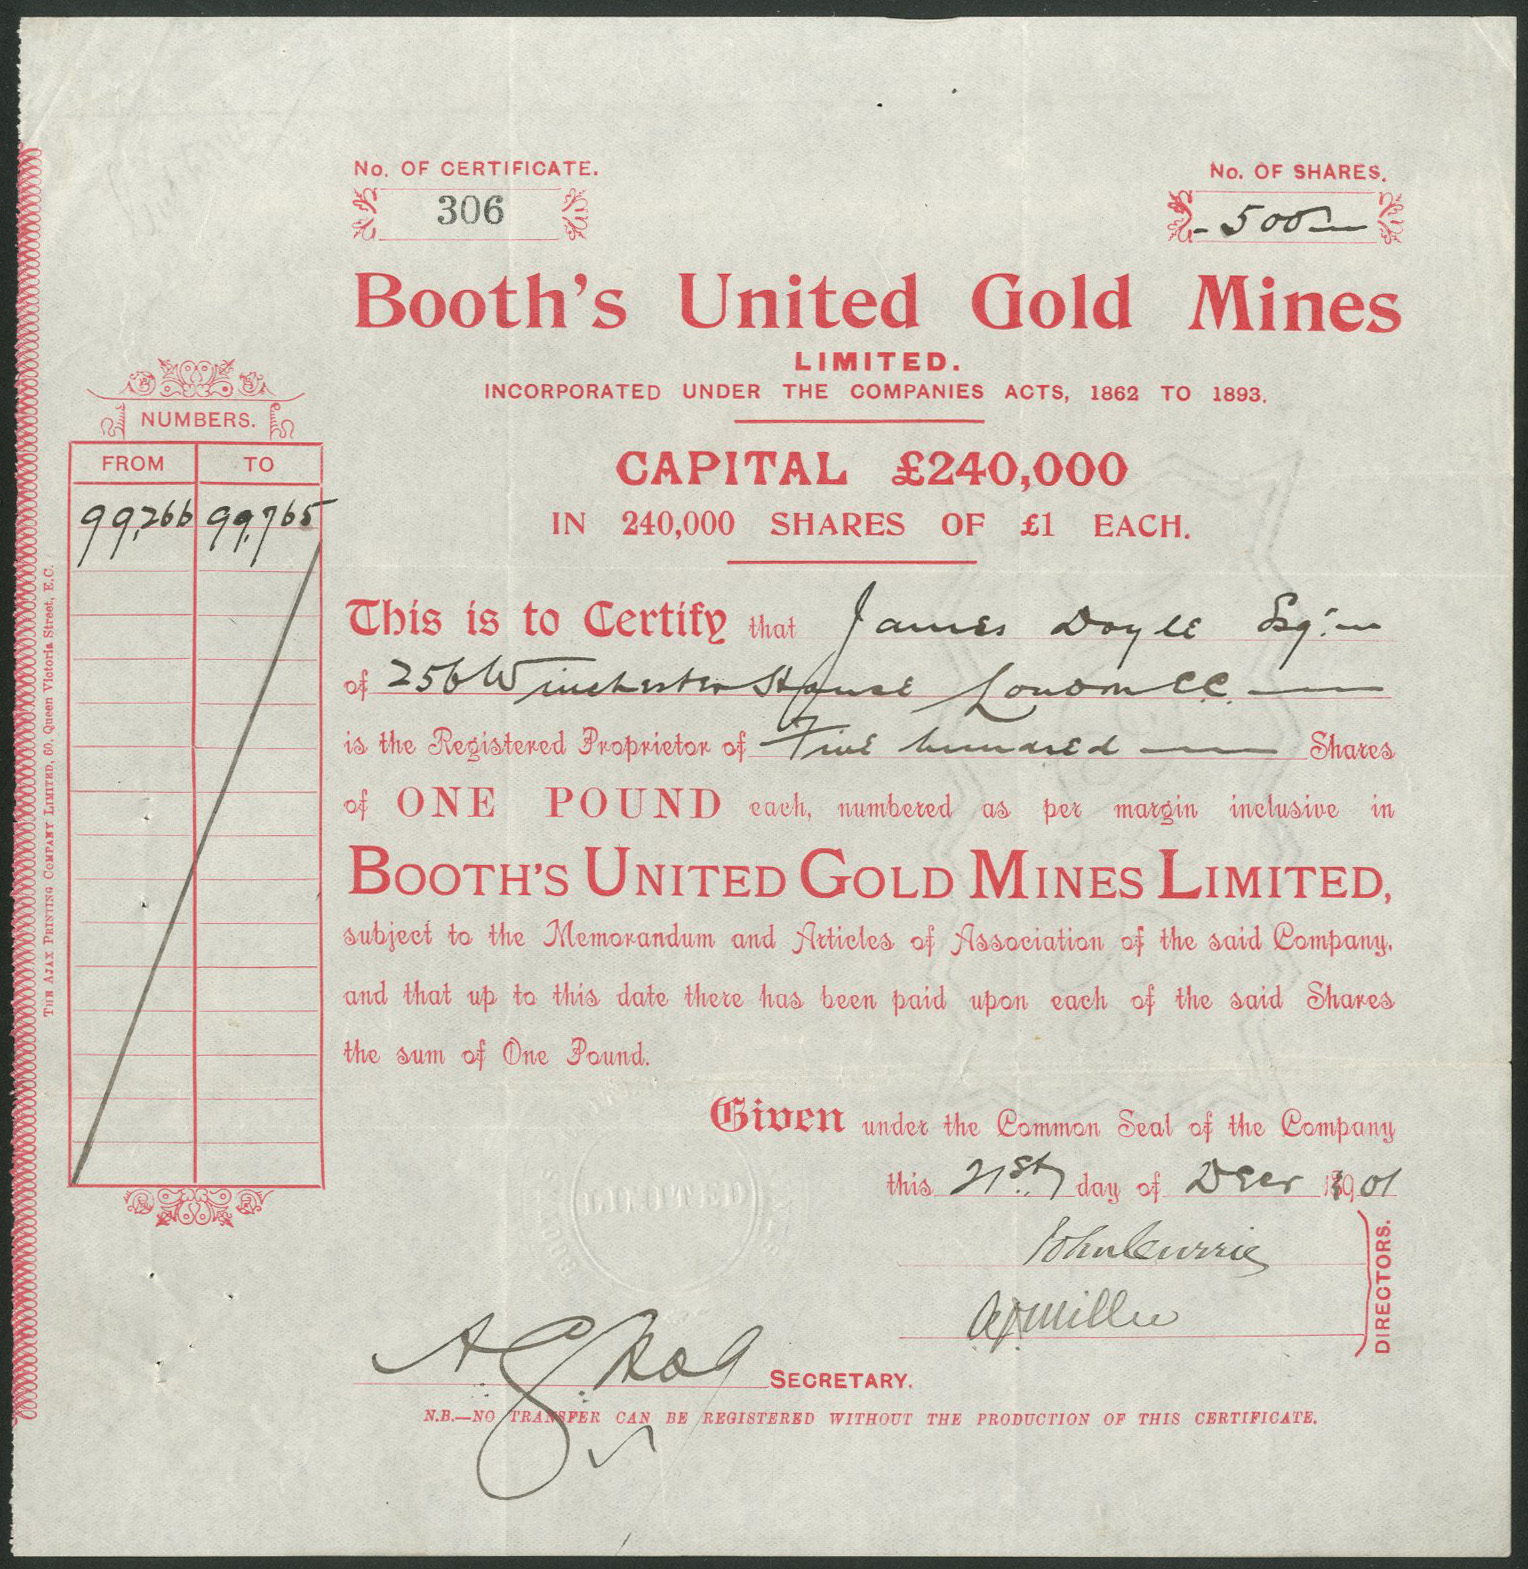 No. OF CERTIFICATE.
306
No. OF SHARES.
-500-
Booth's United Gold Mines
LIMITED.
INCORPORATED UNDER THE COMPANIES ACTS, 1862 TO 1893.
CAPITAL £240,000
IN 240,000 SHARES OF £1 EACH.
NUMBERS.
FROM TO
99,266 99,765
This is to Certify that James Doyle Esqr.
of 256 Winchester House London E.C.
is the Registered Proprietor of Five hundred Shares
of ONE POUND each, numbered as per margin inclusive in
BOOTH'S UNITED GOLD MINES LIMITED,
subject to the Memorandum and Articles of Association of the said Company,
and that up to this date there has been paid upon each of the said Shares
the sum of One Pound.
Given under the Common Seal of the Company
this 21st day of Decr 1901
John Currie
Miller
DIRECTORS.
SECRETARY.
N.B.—NO TRANSFER CAN BE REGISTERED WITHOUT THE PRODUCTION OF THIS CERTIFICATE.
THE AJAX PRINTING COMPANY LIMITED, 60, Queen Victoria Street, E.C.
LIMITED